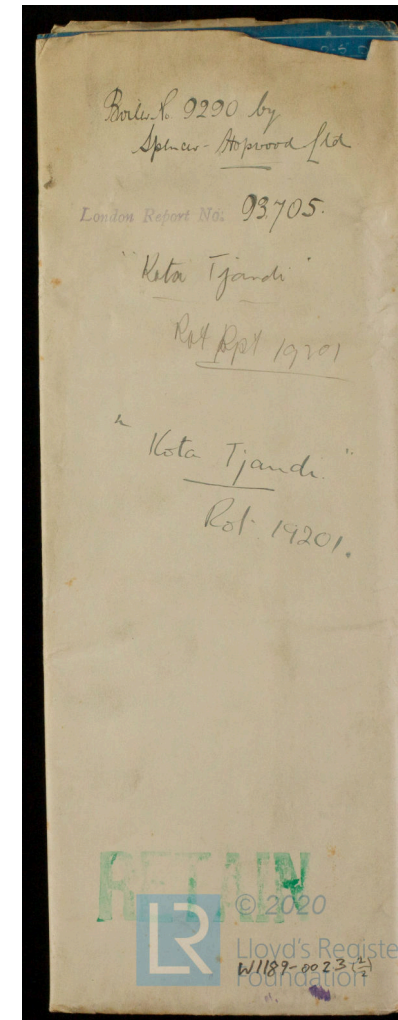 Boiler No 9290 by
Spencer-Hopwood Ltd
London Report No. 93705.
"Kota Tjandi"
Rot Rpt 19201
"Kota Tjandi."
Rot. 19201.
RETAIN
LR
© 2020
Lloyd's Registe
Foundation
W1189-0023 (2/2)